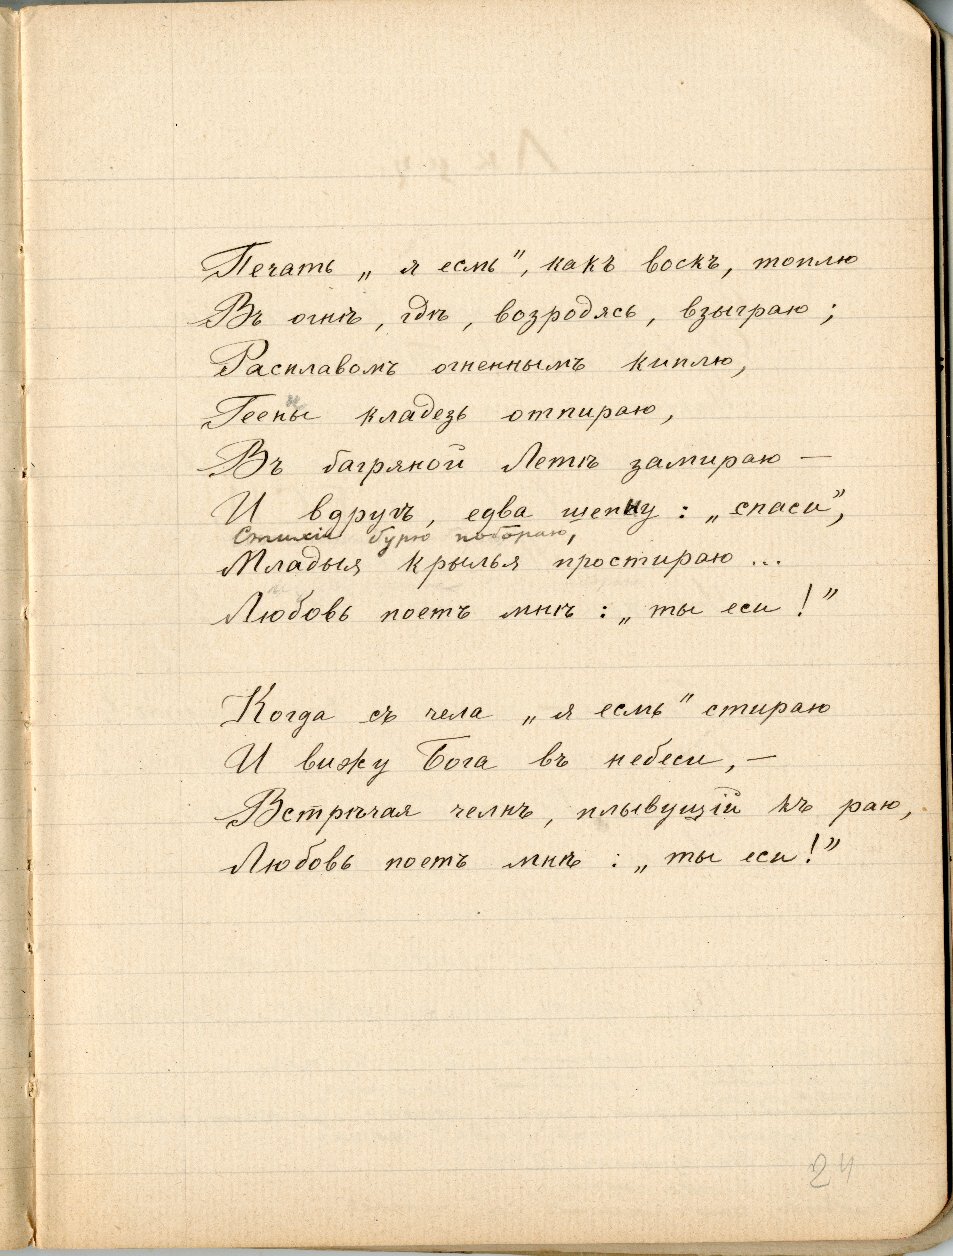 Печать „я есмь”, какъ воскъ, топлю
Въ огнѣ, гдѣ, возродясь, взыграю;
Расплавомъ огненнымъ киплю,
н
Геены кладезь отпираю,
Въ багряной Летѣ замираю —
И вдругъ, едва шепну: „спаси”,
Стихій бурю поборaю,
Младыя крылья простираю ...
Любовь поетъ мнѣ: „ты еси!”
Когда съ чела „я есмь” стираю
И вижу Бога въ небеси, —
Встрѣчая челнъ, плывущій къ раю,
Любовь поетъ мнѣ: „ты еси!”
24